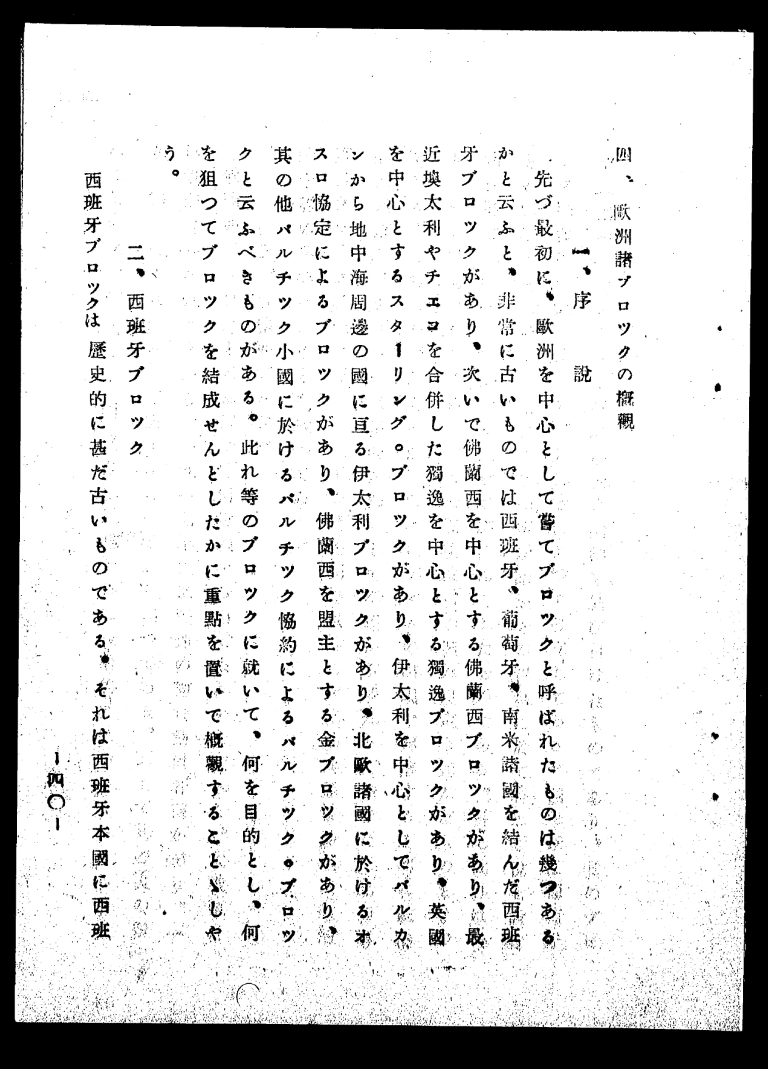 四、歐洲諸ブロツクの概觀
一、序　說
先づ最初に、歐洲を中心として嘗てブロツクと呼ばれたものは幾つある
かと云ふと、非常に古いものでは西班牙、葡萄牙、南米諸國を結んだ西班
牙ブロツクがあり、次いで佛蘭西を中心とする佛蘭西ブロツクがあり、最
近墺太利やチエコを合併した獨逸を中心とする獨逸ブロツクがあり、英國
を中心とするスターリング。ブロツクがあり、伊太利を中心としてバルカ
ンから地中海周邊の國に亘る伊太利ブロツクがあり、北歐諸國に於けるオ
スロ協定によるブロツクがあり、佛蘭西を盟主とする金ブロツクがあり、
其の他バルチツク小國に於けるバルチツク協約によるバルチツク。ブロツ
クと云ふべきものがある。此れ等のブロツクに就いて、何を目的とし、何
を狙つてブロツクを結成せんとしたかに重點を置いて槪觀することゝしや
う。
二、西班牙ブロツク
西班牙ブロツクは歷史的に甚だ古いものである。それは西班牙本國に西班
－四〇－